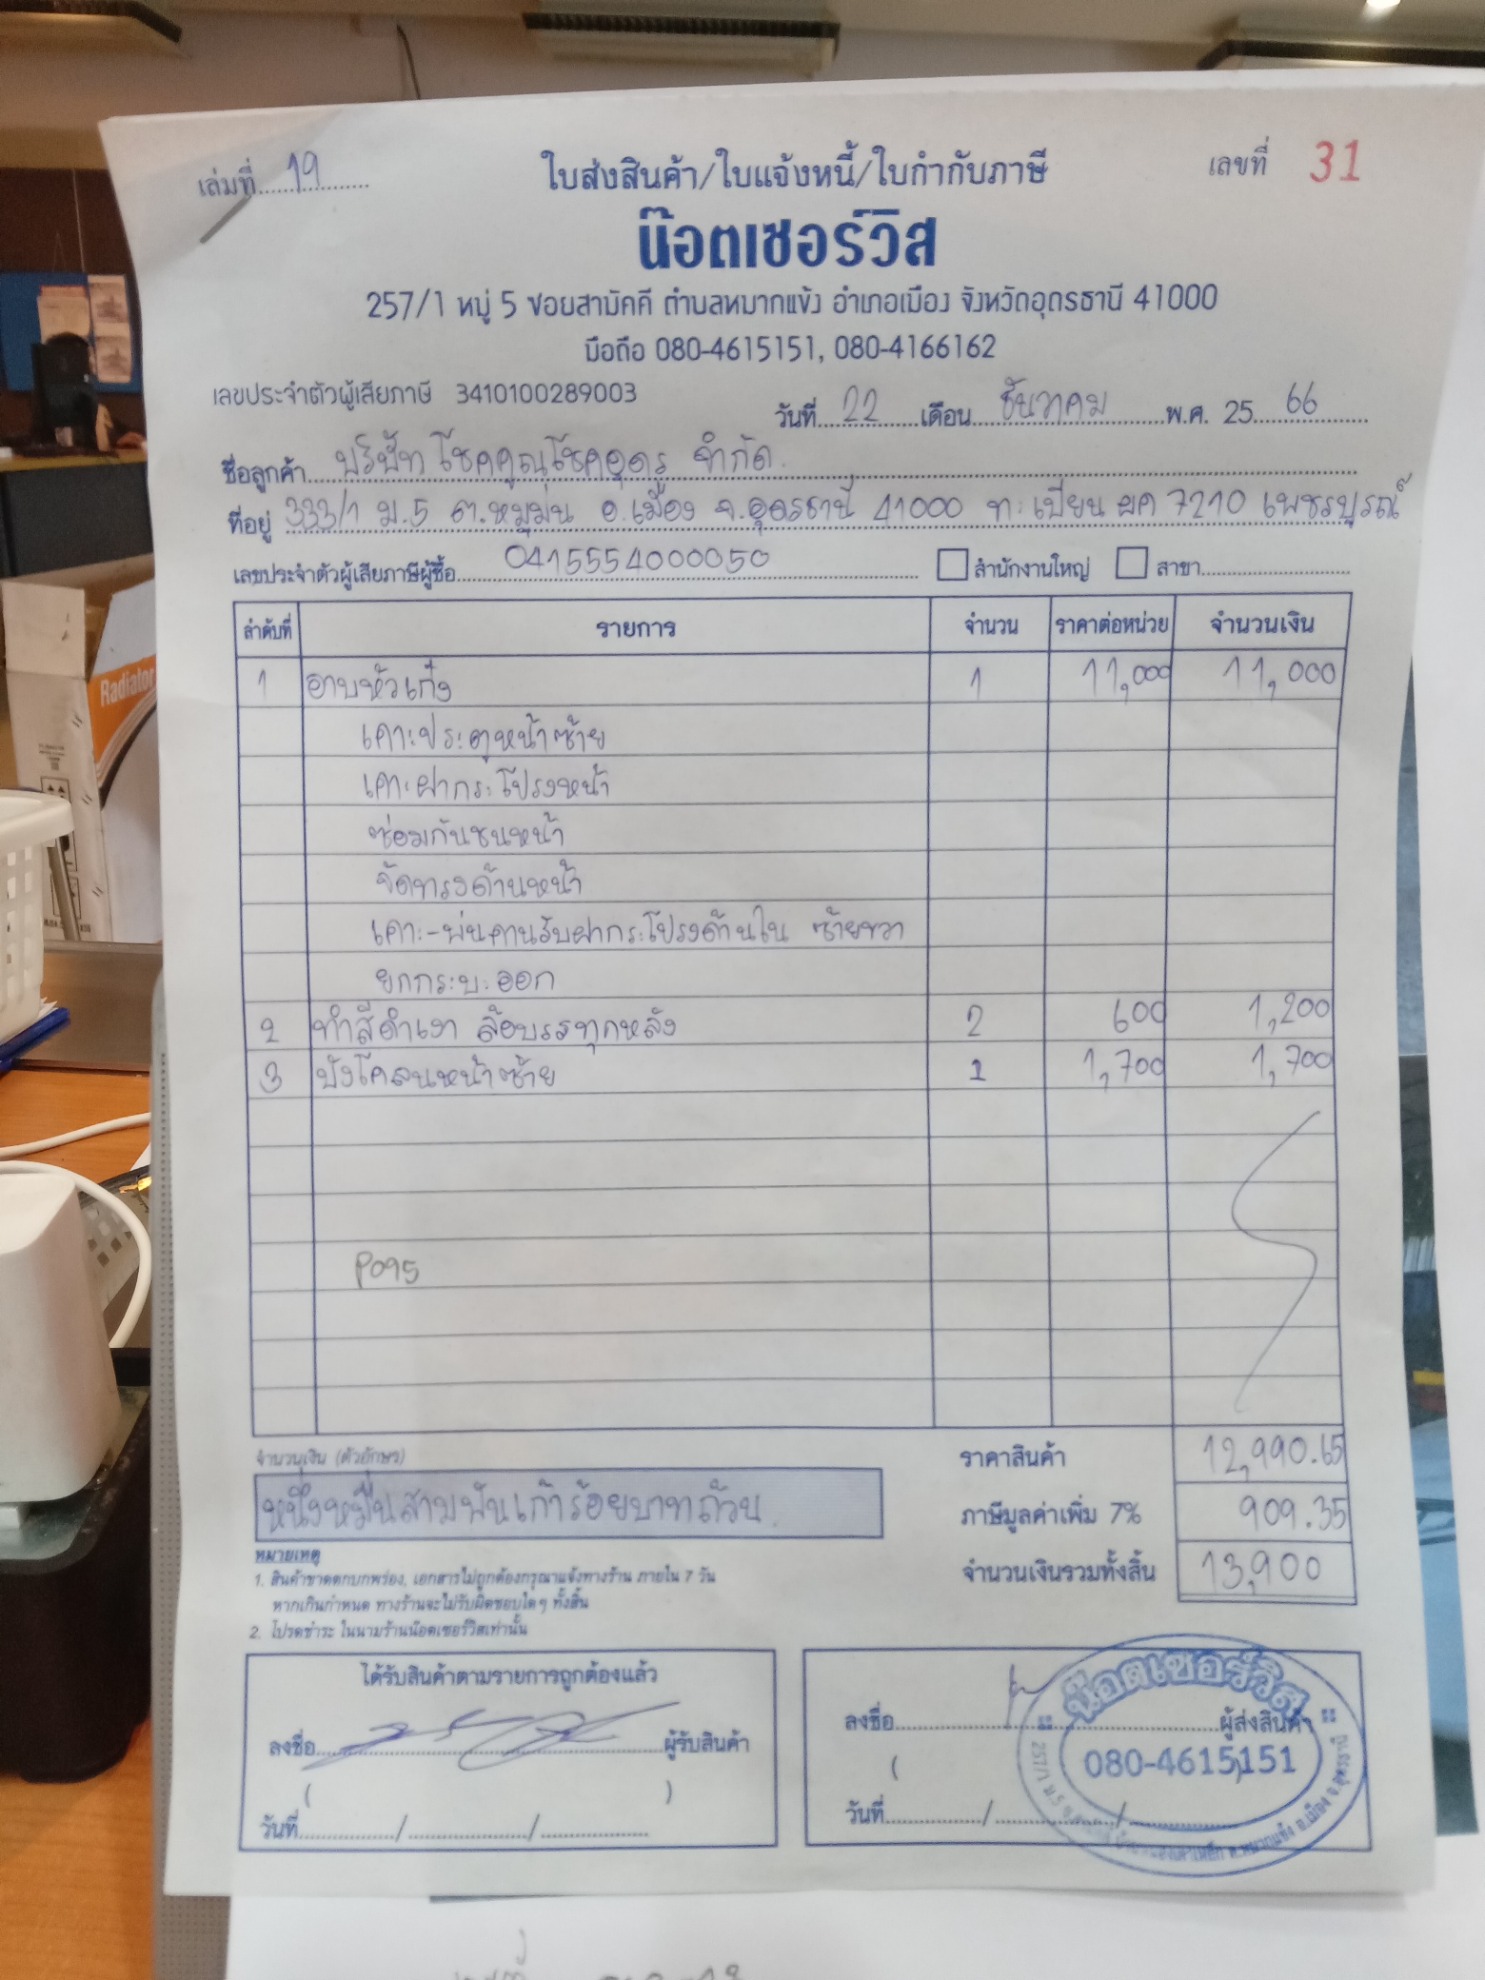 เล่มที่ 19 ใบส่งสินค้า/ใบแจ้งหนี้/ใบกำกับภาษี เลขที่ 31
น๊อตเซอร์วิส
257/1 หมู่ 5 ซอยสามัคคี ตำบลหมากแข้ง อำเภอเมือง จังหวัดอุดรธานี 41000
มือถือ 080-4615151, 080-4166162
เลขประจำตัวผู้เสียภาษี 3410100289003
วันที่ 22 เดือน ธันวาคม พ.ศ. 25 66
ชื่อลูกค้า บริษัท โชคคูณโชคอุดร จำกัด
ที่อยู่ 333/1 ม.5 ต.หมูม่น อ.เมือง จ.อุดรธานี 41000 ทะเบียน ผค 7210 เพชรบูรณ์
เลขประจำตัวผู้เสียภาษีผู้ซื้อ 0415554000050 สำนักงานใหญ่ สาขา
ลำดับที่ รายการ จำนวน ราคาต่อหน่วย จำนวนเงิน
1 อาบหัวเก๋ง 1 11,000 11,000
เคาะประตูหน้าซ้าย
เคาะฝากระโปรงหน้า
ซ่อมกันชนหน้า
จัดทรงด้านหน้า
เคาะ-พ่นคานรับฝากระโปรงด้านใน ซ้ายขวา
ยกกระบะออก
2 ทำสีดำเงา ล้อบรรทุกหลัง 2 600 1,200
3 บังโคลนหน้าซ้าย 1 1,700 1,700
P095
จำนวนเงิน (ตัวอักษร)
ราคาสินค้า 12,990.65
หนึ่งหมื่นสามพันเก้าร้อยบาทถ้วน
ภาษีมูลค่าเพิ่ม 7% 909.35
จำนวนเงินรวมทั้งสิ้น 13,900
หมายเหตุ
1. สินค้าขาดตกบกพร่อง, เอกสารไม่ถูกต้องกรุณาแจ้งทางร้าน ภายใน 7 วัน
หากเกินกำหนด ทางร้านจะไม่รับผิดชอบใดๆ ทั้งสิ้น
2. โปรดชำระ ในนามร้านน๊อตเซอร์วิสเท่านั้น
ได้รับสินค้าตามรายการถูกต้องแล้ว
ลงชื่อ ผู้รับสินค้า
( )
วันที่ / /
ลงชื่อ ผู้ส่งสินค้า
( )
วันที่ / /
น๊อตเซอร์วิส
080-4615151
Radiator